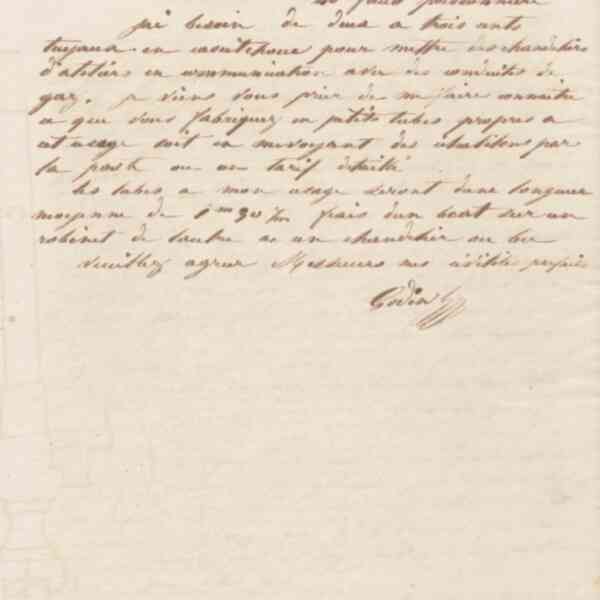 faub poissonniere
jai besoin de deux a trois cents
tuyaux en caoutchouc pour mettre des chandeliers
d'ateliers en communication avec des conduites de
gaz. je viens vous prier de me faire connaitre
ce que vous fabriquez en petits tubes propres a
cet usage soit en menvoyant des echantillons par
la poste ou un tarif detaillé
les tubes a mon usage seront dune longueur
moyenne de 1m 30 fixés dun bout sur un
robinet de lautre a un chandelier ou bec
veuillez agreer Messieurs mes civilités
Godin